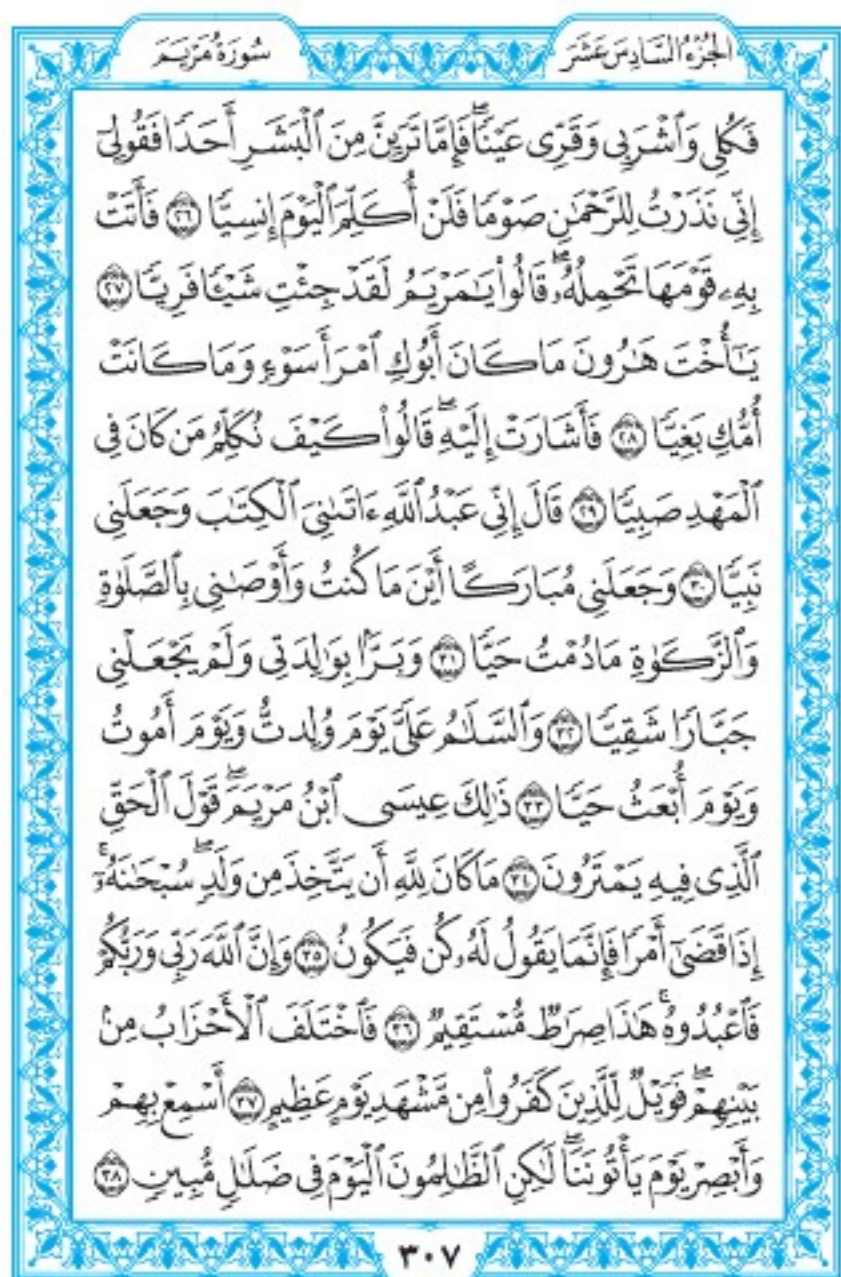 الجُزْءُ السَّادِسَ عَشَرَ
سُورَةُ مَرْيَمَ
فَكُلِي وَٱشْرَبِي وَقَرِّي عَيْنٗاۖ فَإِمَّا تَرَيِنَّ مِنَ ٱلۡبَشَرِ أَحَدٗا فَقُولِيٓ
إِنِّي نَذَرۡتُ لِلرَّحۡمَٰنِ صَوۡمٗا فَلَنۡ أُكَلِّمَ ٱلۡيَوۡمَ إِنسِيّٗا ٢٦ فَأَتَتۡ
بِهِۦ قَوۡمَهَا تَحۡمِلُهُۥۖ قَالُواْ يَٰمَرۡيَمُ لَقَدۡ جِئۡتِ شَيۡـٔٗا فَرِيّٗا ٢٧
يَٰٓأُخۡتَ هَٰرُونَ مَا كَانَ أَبُوكِ ٱمۡرَأَ سَوۡءٖ وَمَا كَانَتۡ
أُمُّكِ بَغِيّٗا ٢٨ فَأَشَارَتۡ إِلَيۡهِۖ قَالُواْ كَيۡفَ نُكَلِّمُ مَن كَانَ فِي
ٱلۡمَهۡدِ صَبِيّٗا ٢٩ قَالَ إِنِّي عَبۡدُ ٱللَّهِ ءَاتَىٰنِيَ ٱلۡكِتَٰبَ وَجَعَلَنِي
نَبِيّٗا ٣٠ وَجَعَلَنِي مُبَارَكًا أَيۡنَ مَا كُنتُ وَأَوۡصَٰنِي بِٱلصَّلَوٰةِ
وَٱلزَّكَوٰةِ مَا دُمۡتُ حَيّٗا ٣١ وَبَرَّۢا بِوَٰلِدَتِي وَلَمۡ يَجۡعَلۡنِي
جَبَّارٗا شَقِيّٗا ٣٢ وَٱلسَّلَٰمُ عَلَيَّ يَوۡمَ وُلِدتُّ وَيَوۡمَ أَمُوتُ
وَيَوۡمَ أُبۡعَثُ حَيّٗا ٣٣ ذَٰلِكَ عِيسَى ٱبۡنُ مَرۡيَمَۖ قَوۡلَ ٱلۡحَقِّ
ٱلَّذِي فِيهِ يَمۡتَرُونَ ٣٤ مَا كَانَ لِلَّهِ أَن يَتَّخِذَ مِن وَلَدٖۖ سُبۡحَٰنَهُۥٓۚ
إِذَا قَضَىٰٓ أَمۡرٗا فَإِنَّمَا يَقُولُ لَهُۥ كُن فَيَكُونُ ٣٥ وَإِنَّ ٱللَّهَ رَبِّي وَرَبُّكُمۡ
فَٱعۡبُدُوهُۚ هَٰذَا صِرَٰطٞ مُّسۡتَقِيمٞ ٣٦ فَٱخۡتَلَفَ ٱلۡأَحۡزَابُ مِنۢ
بَيۡنِهِمۡۖ فَوَيۡلٞ لِّلَّذِينَ كَفَرُواْ مِن مَّشۡهَدِ يَوۡمٍ عَظِيمٍ ٣٧ أَسۡمِعۡ بِهِمۡ
وَأَبۡصِرۡ يَوۡمَ يَأۡتُونَنَاۖ لَٰكِنِ ٱلظَّٰلِمُونَ ٱلۡيَوۡمَ فِي ضَلَٰلٖ مُّبِينٖ ٣٨
٣٠٧